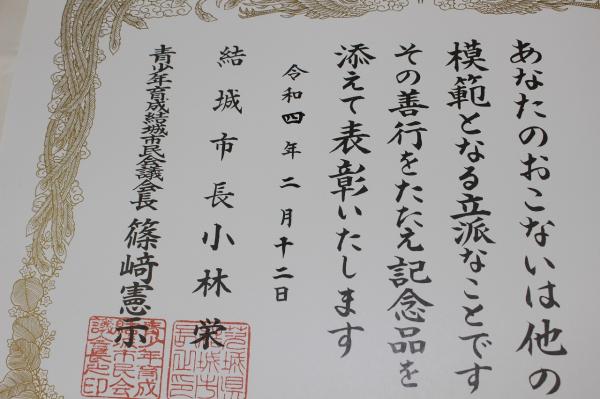 あなたのおこないは他の
模範となる立派なことです
その善行をたたえ記念品を
添えて表彰いたします
令和四年二月十二日
結城市長小林栄
青少年育成結城市民会議会長篠﨑憲示